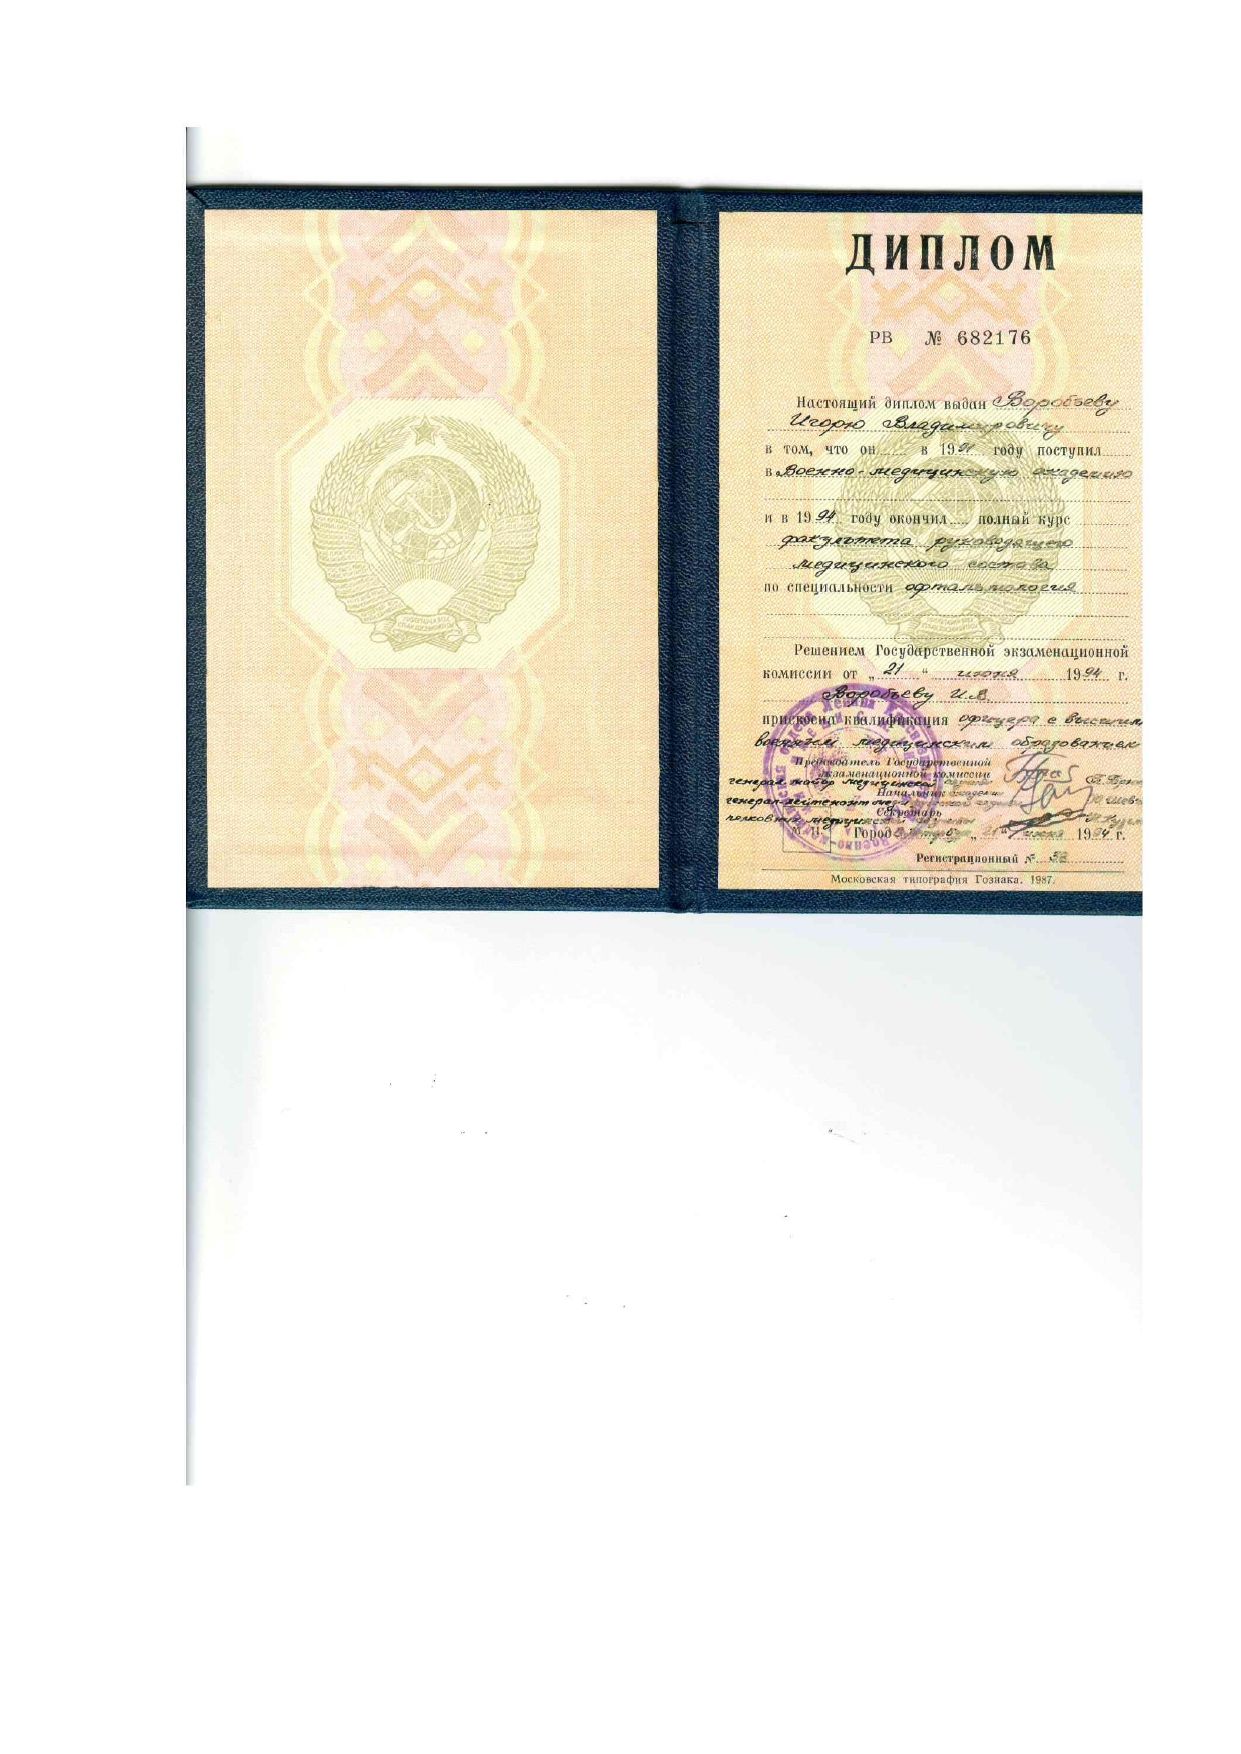 ДИПЛОМ
РВ № 682176
Настоящий диплом выдан Воробьеву
Игорю Владимировичу
в том, что он в 1991 году поступил
в Военно-медицинскую академию
и в 1994 году окончил полный курс
факультета руководящего
медицинского состава
по специальности офтальмология
Решением Государственной экзаменационной
комиссии от „21“ июня 1994 г.
Воробьеву И.В.
присвоена квалификация офицера с высшим
военным медицинским образованием
Председатель Государственной
экзаменационной комиссии
генерал-майор медицинской службы
Начальник академии
генерал-лейтенант
Секретарь
полковник медицинской
М. П. Город „21“ июня 1994 г.
Регистрационный №
Московская типография Гознака. 1987.